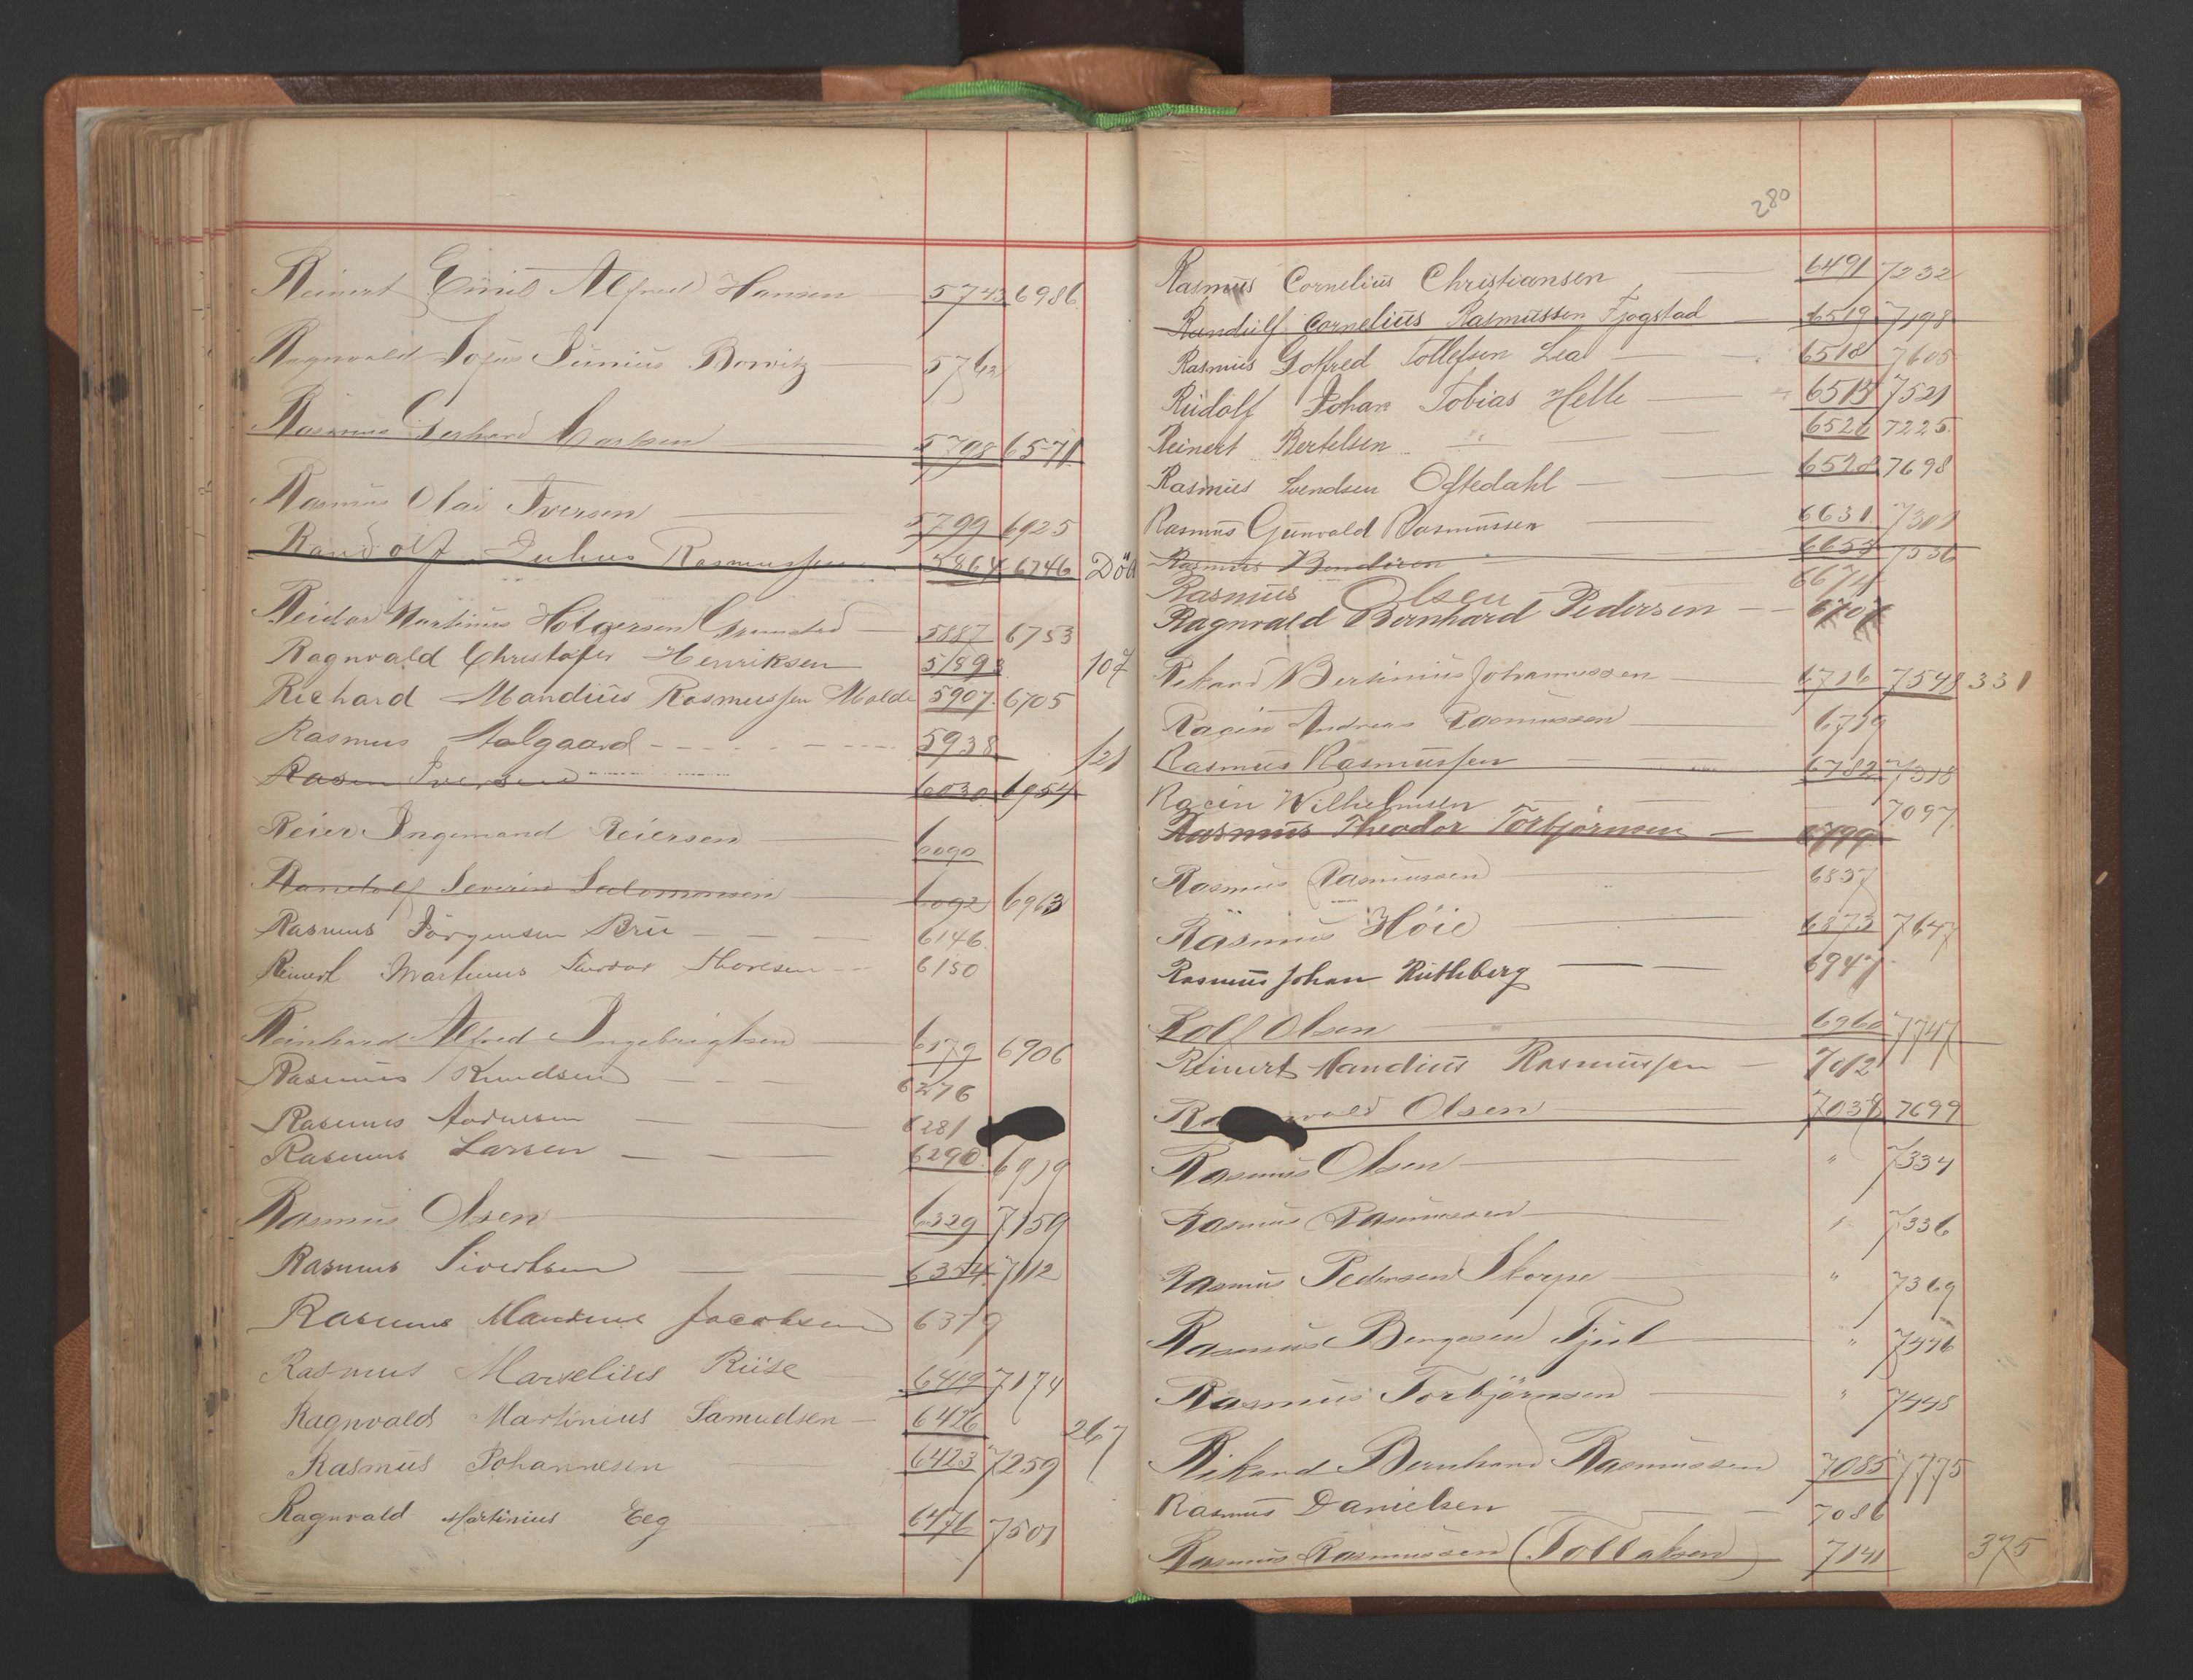 Reinert Emil Alfred Hansen 5743 6986
Ragnvald Junius 5762
Rasmus Gerhard 5798 6571
Rasmus Olai Iversen 5799 6925
Randolf Julius Rasmussen 5864 6746 Död
Reidar Martinus Holgersen Grimstad 5887 6753
Ragnvald Christofer Henriksen 5893 107
Richard Mandius Rasmussen Molde 5907 6705
Rasmus Aalgaard 5938 121
Rasm Iversen 6030 6954
Reier Ingemand Reiersen 6090
Randolf Severin Salomonsen 6092 6963
Rasmus Jörgensen Brü 6146
Reinert Martinus Teodor Thoresen 6150
Reinhard Alfred Ingebrigtsen 6179 6906
Rasmus Knudsen 6276
Rasmus Andersen 6281
Rasmus Larsen 6290 6919
Rasmus Olsen 6329 7159
Rasmus Sivertsen 6354 7112
Rasmus Mandius Jacobsen 6379
Rasmus Marselius Riise 6419 7174
Ragnvald Martinius Samuelsen 6426 267
Rasmus Johannesen 6423 7259
Ragnvald Martinius Eeg 6476 7501
280
Rasmus Cornelius Christiansen 6491 7232
Randulf Cornelius Rasmussen Fjogstad 6519 7198
Rasmus Gotfred Tollefsen Lea 6518 7605
Rudolf Johan Tobias Helle 6515 7521
Reinert Bertelsen 6526 7225
Rasmus Svendsen Oftedahl 6528 7698
Rasmus Gunvald Rasmussen 6631 7301
Rasmus 6655 7536
Rasmus Olsen 6674
Ragnvald Bernhard Pedersen 6707
Rikard Bertinius Johannessen 6716 7548 331
Racin Andreas Rasmussen 6719
Rasmus Rasmussen 6782 7318
Racin Wilhelmsen 7097
Rasmus Theodor Torbjörnsen 6799
Rasmus Rasmussen 6837
Rasmus Höie 6873 7647
Rasmus Johan Ruthberg 6947
Rolf Olsen 6960 7747
Reinert Mandius Rasmussen 7012
Ra vald Olsen 7038 7699
Rasmus Olsen " 7334
Rasmus Rasmussen " 7336
Rasmus Pedersen Skorpe " 7369
Rasmus Tjul " 7446
Rasmus Torbjörnsen " 7448
Rikard Bernhard Rasmussen 7085 7775
Rasmus Danielsen 7086
Rasmus Rasmussen (Tollaksen) 7141 375